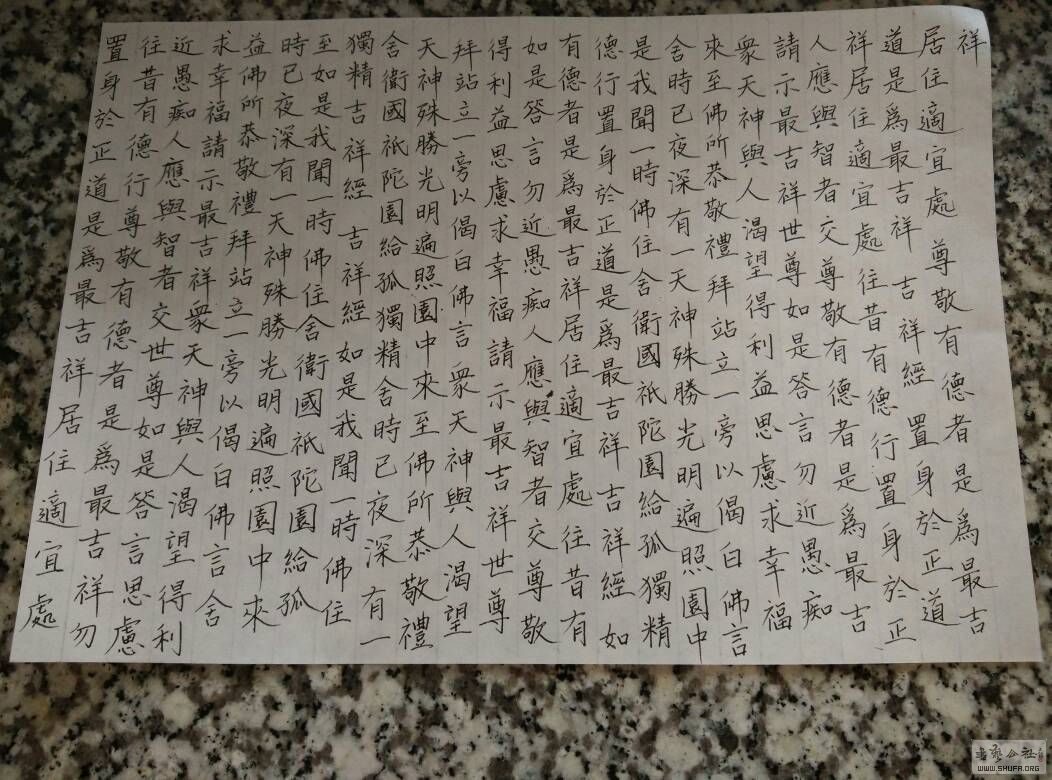 置身於正道是爲最吉祥居住適宜處
往昔有德行尊敬有德者是爲最吉祥勿
近愚痴人應與智者交世尊如是答言思慮
求幸福請示最吉祥衆天神與人渴望得利
益佛所恭敬禮拜站立一旁以偈白佛言舍
時已夜深有一天神殊勝光明遍照園中來
至如是我聞一時佛住舍衛國祇陀園給孤
獨精吉祥經 吉祥經如是我聞一時佛住
舍衛國祇陀園給孤獨精舍時已夜深有一
天神殊勝光明遍照園中來至佛所恭敬禮
拜站立一旁以偈白佛言衆天神與人渴望
得利益思慮求幸福請示最吉祥世尊
如是答言勿近愚痴人應與智者交尊敬
有德者是爲最吉祥居住適宜處往昔有
德行置身於正道是爲最吉祥吉祥經如
是我聞一時佛住舍衛國祇陀園給孤獨精
舍時已夜深有一天神殊勝光明遍照園中
來至佛所恭敬禮拜站立一旁以偈白佛言
衆天神與人渴望得利益思慮求幸福
請示最吉祥世尊如是答言勿近愚痴
人應與智者交尊敬有德者是爲最吉
祥居住適宜處往昔有德行置身於正
道是爲最吉祥 吉祥經 置身於正道
居住適宜處 尊敬有德者是爲最吉
祥
書藝公社
WWW.SHUFA.ORG